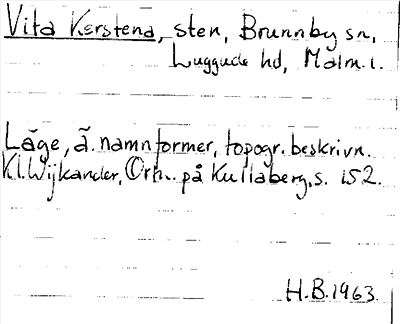 Vita Kerstena, sten, Brunnby sn,
Luggude hd, Malm. l.
Läge, ä. namnformer, topogr. beskrivn.
Kl. Wijkander, Ortn. på Kullaberg, s. 152.
H.B. 1963